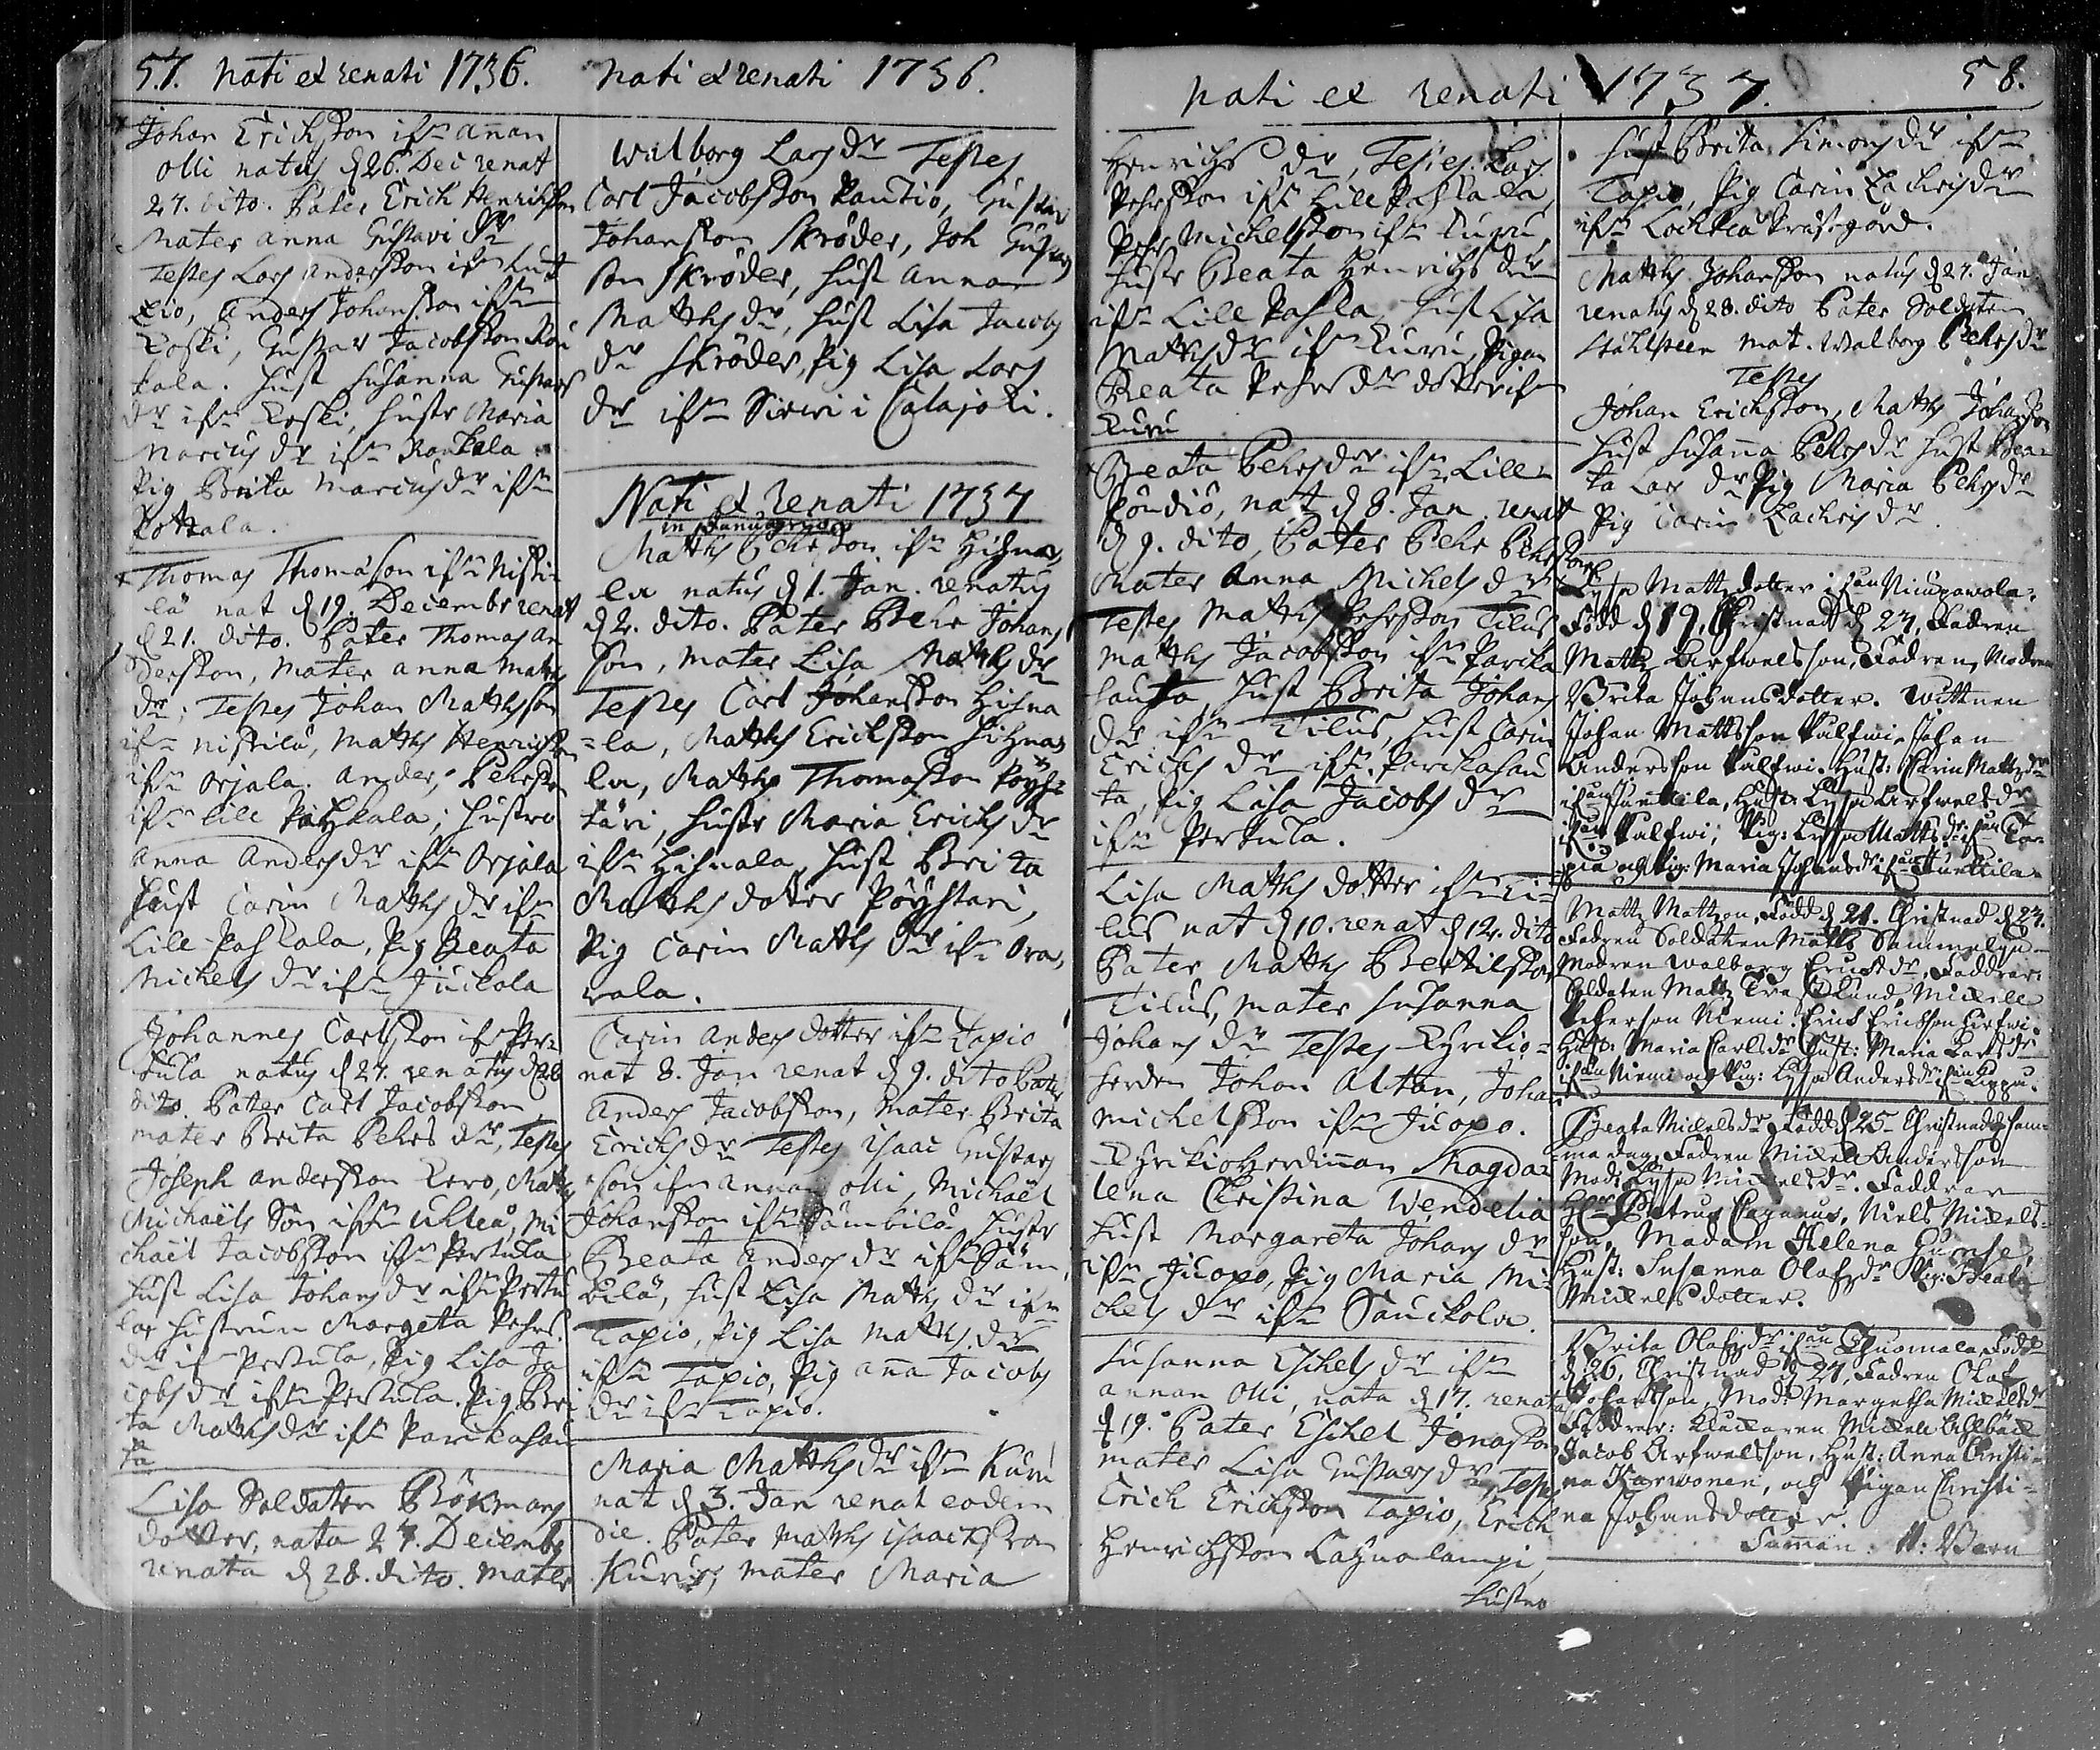 57. Nati et renati 1736.
Johan Erichsson ifrn annan
olli natus d 26. Dec renat
27. dito. Pater Erich Henrichsson
Mater Anna Gustavi dr
Testes Lars Andersson ifrn
Anders Johansson ifrn
Koski, Gustav Jacobsson Rau
kala. Hust Susanna Gustavs
dr ifrn Koski, Hustr Maria
Marcus dr ifrn Raukala
Pig Brita Marcus dr ifrn
Kottala.
Thomas Thomasson ifrn Niski
lä nat d 19. Decembr renat
d 21. dito. Pater Thomas An
dersson, Mater Anna Matts
dr; Testes Johan Matthsson
ifrn Niskilä, Matths Henrichsson
ifrn Orjala. Anders Pehrsson
ifrn Lille Pahkala; Hustru
Anna Anders dr ifrn Orjala
Hust Carin Matths dr ifrn
Lille Pahkala, Pig Beata
Michels dr ifrn Juckola
Johannes Carlsson ifrn Per
tula natus d 27. renatus d 28
dito. Pater Carl Jacobsson
mater Brita Pehrs dr, Testes
Joseph Andersson Kero, Matths
Michaels Son ifrn Uhlea, Mi
chael Jacobsson ifrn Pertula
Hust Lisa Johans dr ifrn Pertu
la, Hustrun Margeta Pehrs
dr if Pertula, Pig Lisa Ja
cobs dr ifrn Pertula. Pig Bri
ta Matths dr ifrn Parikahau
ta
Lisa Soldaten Bökmans
dotter, nata 27. Decembr
renata d 28. dito. Mater
Nati et renati 1736.
Walborg Lars dr Testes
Carl Jacobsson Kautio, Gustav
Johansson Skröder, Joh Gustavs
son Skröder, Hust Anna
Matths dr, Hust Lisa Jacobs
dr Skröder, Pig Lisa Lars
dr ifrn Sirwi i Calajoki.
Nati et Renati 1737
in Januario
Matths Pehrsson ifrn Hihna
la natus d 1. Jan. renatus
d 2. dito. Pater Pehr Johans
son, mater Lisa Matths dr
Testes Carl Johansson Hihna
=la, Matths Erichsson Hihna
la, Matths Thomasson Pöyh
täri, Hustr Maria Erichs dr
ifrn Hihnala, Hust Brita
Matths dotter Pöyhtari,
Pig Carin Matths dr ifrn Ora
wala.
Carin Anders dotter ifrn Tapio
nat 8. Jan renat d 9. dito Pater
Anders Jacobsson, Mater Brita
Erichs dr Testes Isaac Gustavs
son ifrn Annan olli, Michael
Johansson ifrn Sämbilä Hustr
Beata Anders dr ifrn Säm
bilä, Hust Lisa Matths dr ifrn
Tapio, Pig Lisa Matths dr
ifrn Tapio, Pig Anna Jacobs
dr ifrn Tapio.
Maria Matths dr ifrn Kuru
nat d 3. Jan renat eodem
die. Pater Matths Isaacksson
Kuru, mater Maria
Nati et renati 1737.
Henrichs dr, Testes. Lars
Pehrsson ifrn Lille Pahkala,
Pehr Michelsson ifrn Kuru,
Hustr Beata Henrichs dr
ifrn Lille Pahla, Hust Lisa
Matths dr ifrn Kuru, Pigan
Beata Pehrs dr dotter ifrn
Kuru
Beata Pehrs dr ifrn Lille
Pöndiö, nat d 8. Jan. renat
d 9. dito, Pater Pehr Pehrsson
Mater Anna Michels dr
Testes Matths Pehrsson Tilus
Matths Jacobsson ifrn Parika
hauta, Hust Brita Johans
dr ifrn Tilus, Hust Carin
Erichs dr ifrn Parikahau
ta, Pig Lisa Jacobs dr
ifrn Pertula.
Lisa Matths dotter ifrn Ti-
lus nat d 10. renat d 12. dito
Pater Matths Bertilsson
Tilus, mater Susanna
Johans dr Testes Kyrkio-
herden Johan Altan, Johan
Michelsson ifrn Jucopo.
Kyrkioherdinnan Magda
lena Christina Wendelia
Hust Margareta Johans dr
ifrn Jucopo, Pig Maria Mi-
chels dr ifrn Sauckola.
Susanna Eschels dr ifrn
annan Olli, nata d 17. renata
d 19. Pater Eschel Jönasson
mater Lisa Gustavs dr, Testes
Erich Erichsson Tapio, Erich
Henrichsson Lahnalampi,
Hustru
58.
Hust Brita Simons dr ifrn
Tapio, Pig Carin Zachris dr
ifrn Lochtea Prästegård.
Matths Johansson natus d 27. Jan
renatus d 28. dito Pater Soldaten
Stahlsteen Mat. Walborg Pehrs dr
Testes
Johan Erichsson, Matths Johansson
Hust Susanna Pehrs dr Hust Bea-
ta Lars dr Pig Maria Pehrs dr
Pig Carin Zachris dr.
Lysa Matts dotter ifrån
Född d 19, Christnadt d 27, Fadren
Matts Arfwelsson, Modren
Brita Johansdotter. Wittnen
Johan Mattsson Palfwi, Johan
Andersson Palfwi Hust: Carin Matts dr
ifrån Junkila, Hust: Lysa Arfwels dr
ifrån Palfwi; Pig: Lysa Matts dr ifrån Ta
pio och Pig: Maria Johans dr ifrån Junkila
Matts Mattson, Född d 21. Christnad d 27.
Fadren Soldaten Matts
Modren Walborg dr, Faddrar
Soldaten Matts Mickell
Peherson Niemi. Erick Ericsson
Hust: Maria Carls dr Hust: Maria Lars dr
ifrån Niemi och Pig: Lysa Anders dr ifrån
Beata Mickels dr Född d 25 Christnad sam-
ma dag, Fadren Mickell Andersson
Mod: Lysa Mickels dr. Faddrar
Petrus Niels Mickels-
son, Madam Helena
Hust: Susanna Olafs dr Pig: Beata
Mickelsdotter.
Brita Olafs dr ifrån Född
d 26, Christnad d 27, Fadren Olof
Johansson, Mod: Margetha Mickels dr
Faddrar: Klockaren Mickell Ahlbäck
Jacob Arfwelsson, Hust: Anna Christi-
na Karwonen, och Pigan Christi-
na Johansdotter.
Summan. 11: Barn